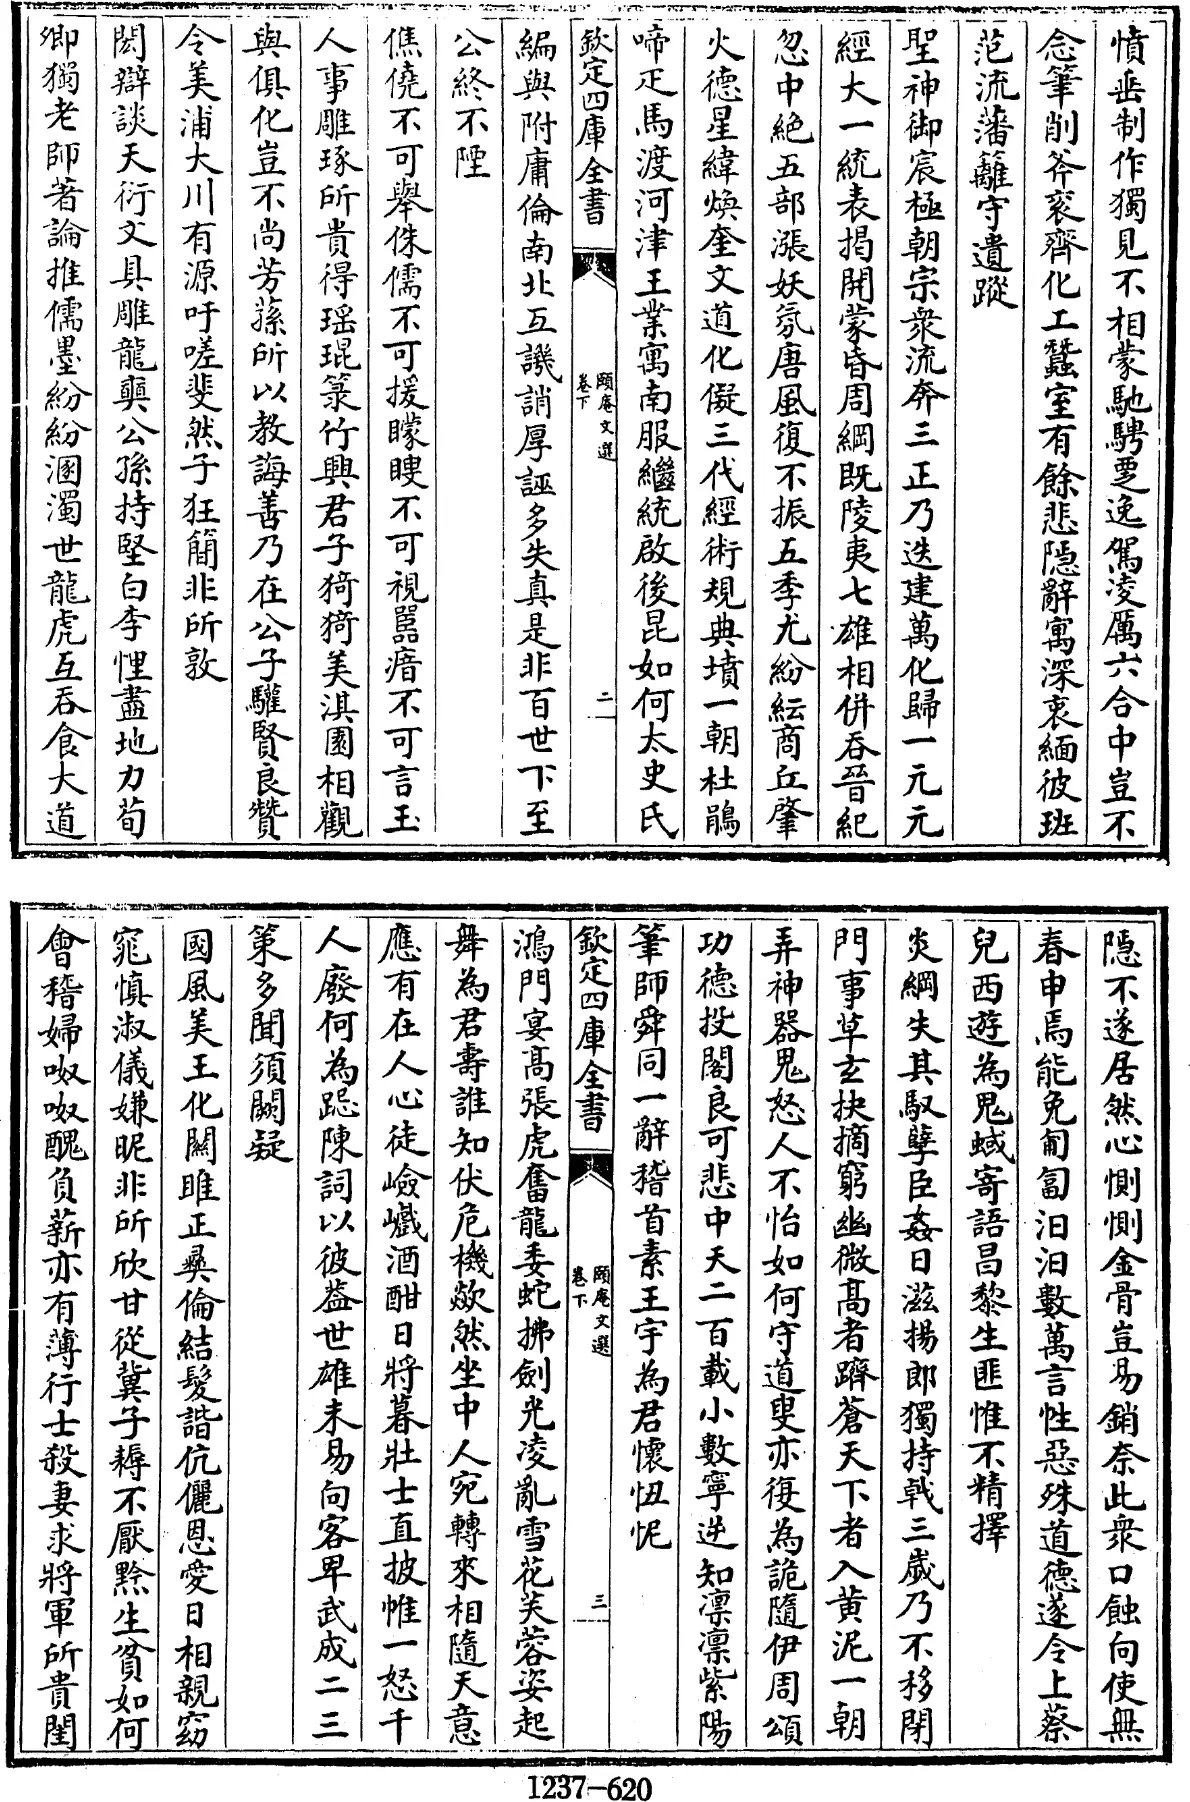 憤垂制作獨見不相蒙馳騁覂逸駕凌厲六合中豈不
念筆削斧衮齊化工蠶室有餘悲隠辭寓深衷緬彼班
范流藩籬守遺蹤
聖神御宸極朝宗衆流奔三正乃迭建萬化歸一元元
經大一統表揭開蒙昏周綱既陵夷七雄相併吞晉紀
忽中絶五部漲妖氛唐風復不振五季尤紛紜商丘肇
火德星緯煥奎文道化儗三代經術規典墳一朝杜鵑
啼疋馬渡河津王業寓南服繼統啟後昆如何太史氏
欽定四庫全書
頤庵文選
卷下
二
編與附庸倫南北互譏誚厚誣多失真是非百世下至
公終不陻
僬僥不可舉侏儒不可援矇瞍不可視嚚瘖不可言玉
人事雕琢所貴得瑶琨菉竹興君子猗猗美淇園相觀
與俱化豈不尚芳蓀所以教誨善乃在公子驩賢良贊
令美浦大川有源吁嗟斐然子狂簡非所敦
閎辯談天衍文具雕龍奭公孫持堅白李悝盡地力荀
卿獨老師著論推儒墨紛紛溷濁世龍虎互吞食大道
隠不遂居然心惻惻金骨豈易銷奈此衆口蝕向使無
春申焉能免匍匐汩汩數萬言性惡殊道德遂令上蔡
兒西遊為鬼蜮寄語昌黎生匪惟不精擇
炎綱失其馭孽臣姦日滋揚郎獨持戟三歲乃不移閉
門事草玄抉摘窮幽微高者躋蒼天下者入黄泥一朝
弄神器鬼怒人不怡如何守道叟亦復為詭隨伊周頌
功德投閣良可悲中天二百載小數寧逆知凛凛紫陽
筆師舜同一辭稽首素王宇為君懷忸怩
欽定四庫全書
頤庵文選
卷下
三
鴻門宴高張虎奮龍委蛇拂劍光凌亂雪花芙蓉姿起
舞為君壽誰知伏危機歘然坐中人宛轉來相隨天意
應有在人心徒嶮巇酒酣日將暮壯士直披帷一怒千
人廢何為跽陳詞以彼葢世雄未易向客卑武成二三
策多聞須闕疑
國風美王化關雎正彞倫結髮諧伉儷恩愛日相親窈
窕慎淑儀嫌昵非所欣甘從冀子耨不厭黔生貧如何
會稽婦呶呶醜負薪亦有薄行士殺妻求將軍所貴閨
1237-620